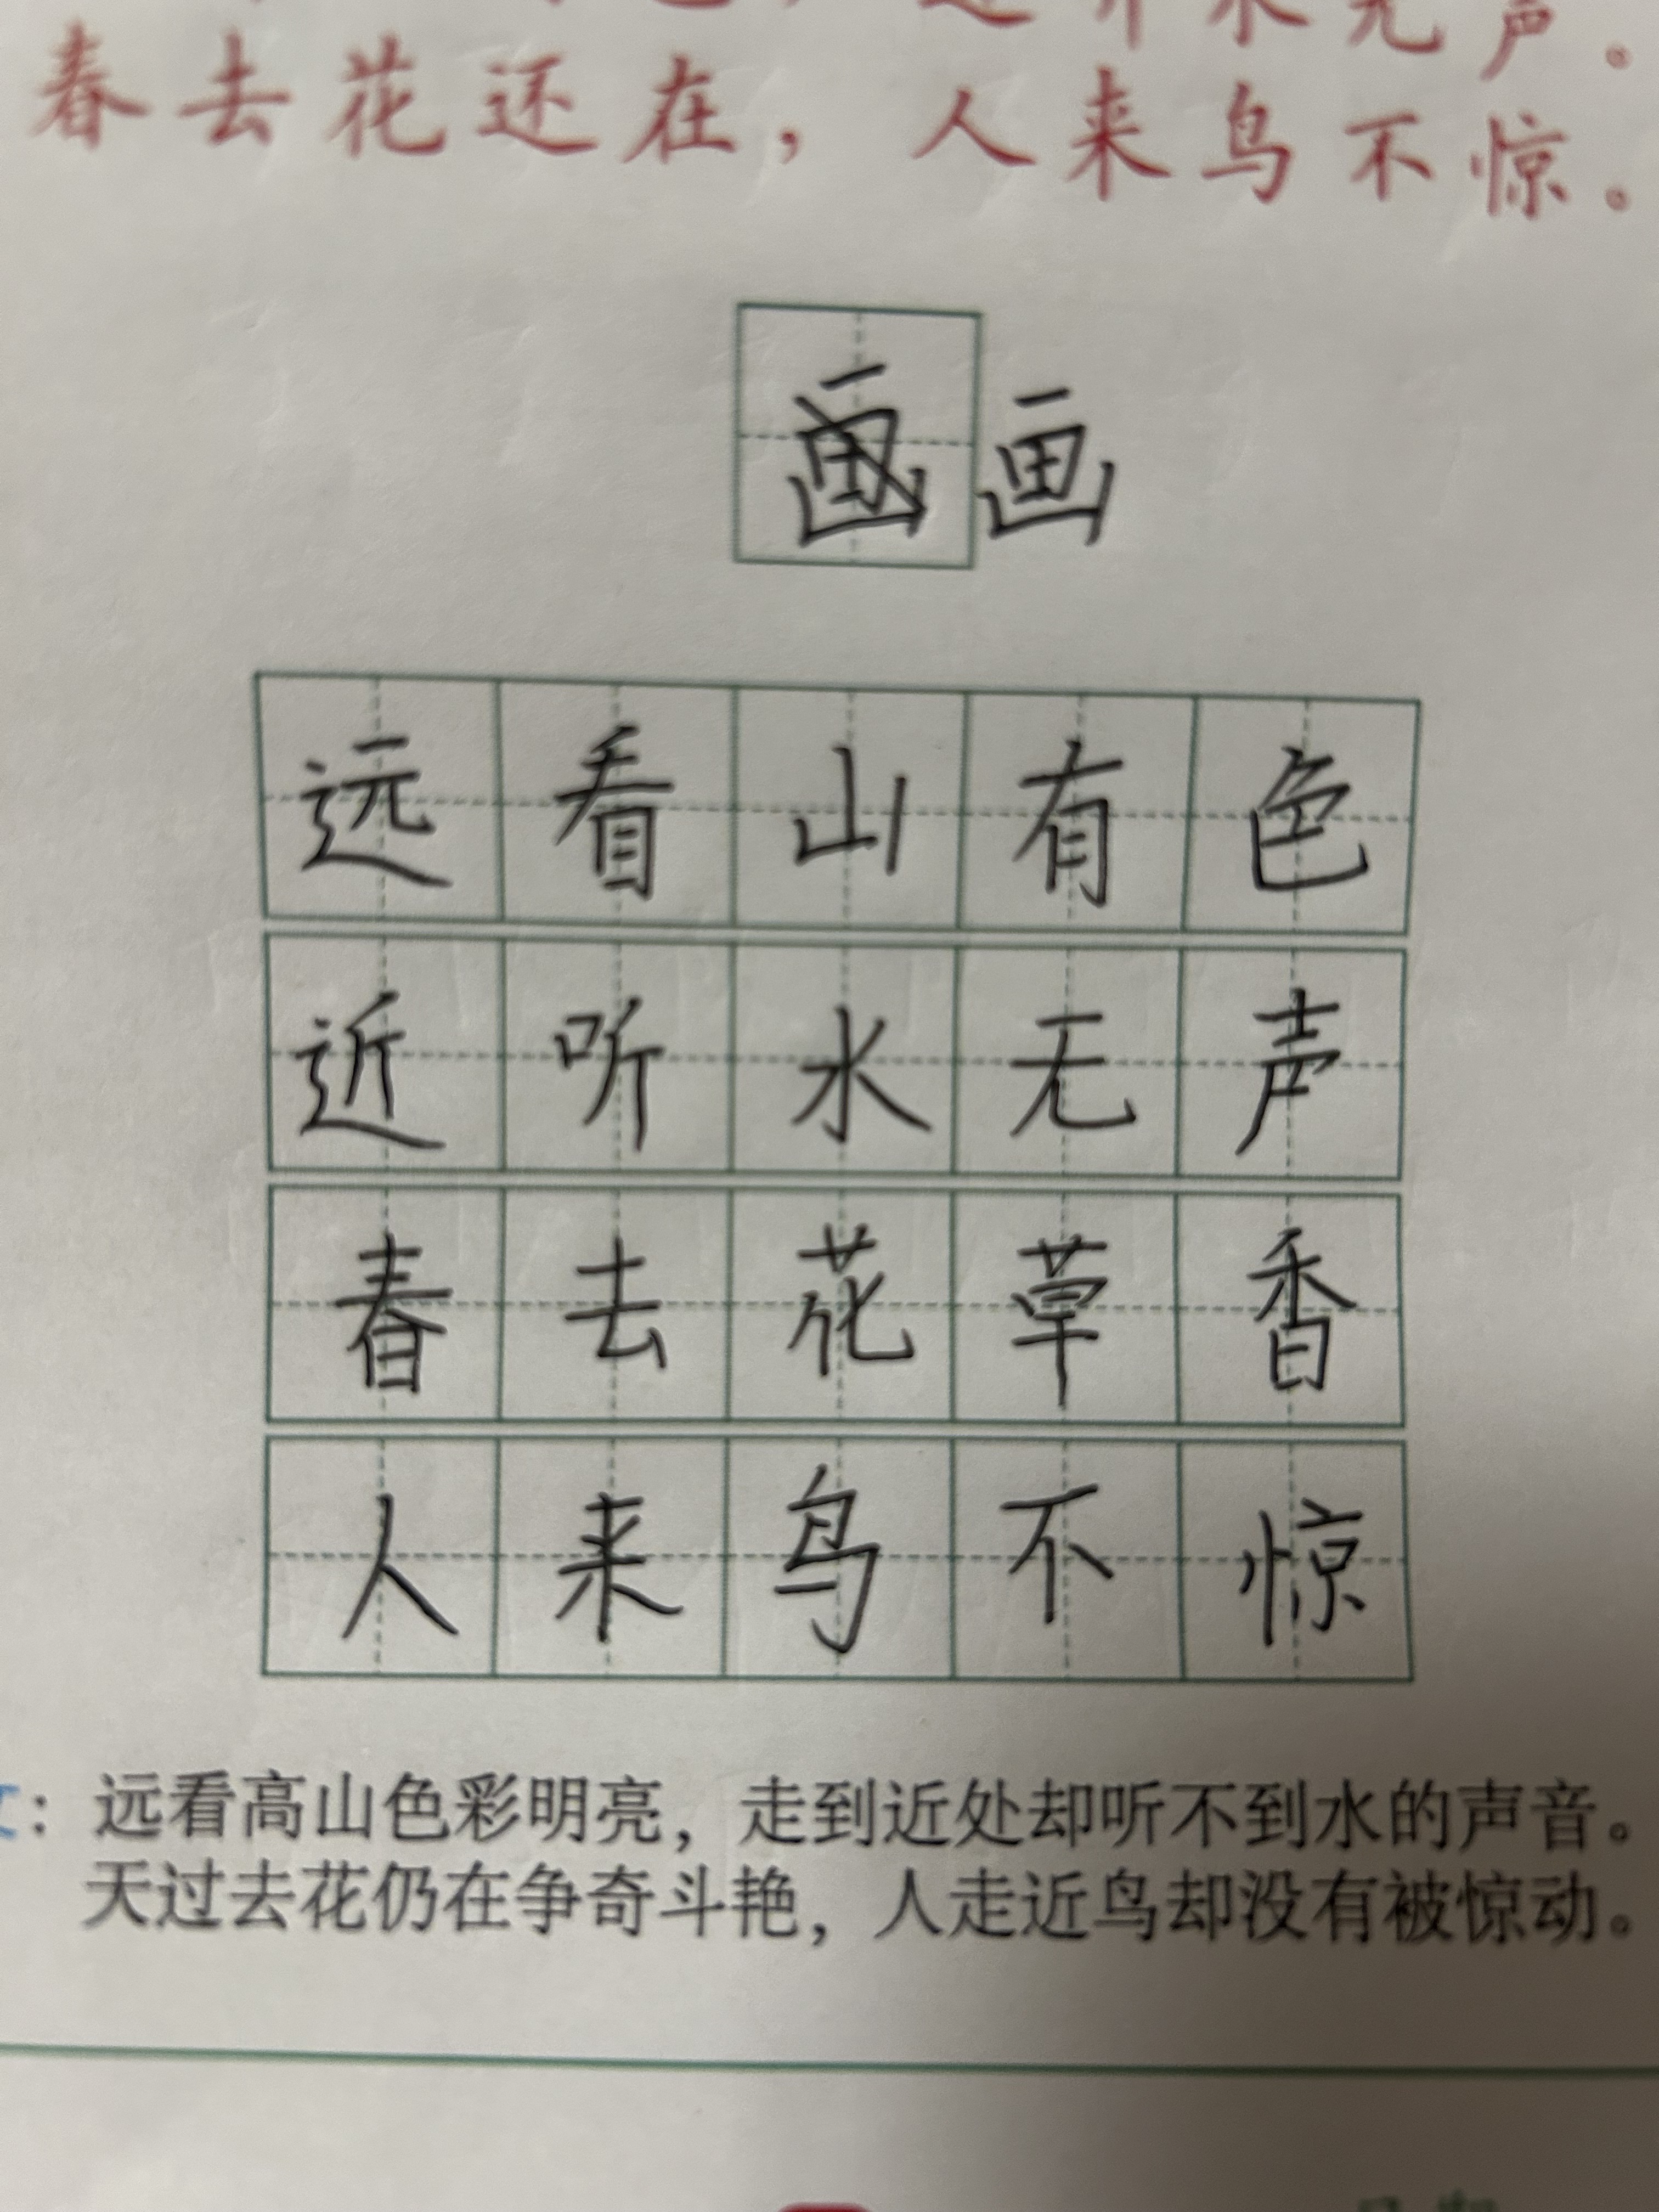 近听水无声。
春去花还在，人来鸟不惊。
画
远看山有色
近听水无声
春去花草香
人来鸟不惊
：远看高山色彩明亮，走到近处却听不到水的声音。
天过去花仍在争奇斗艳，人走近鸟却没有被惊动。